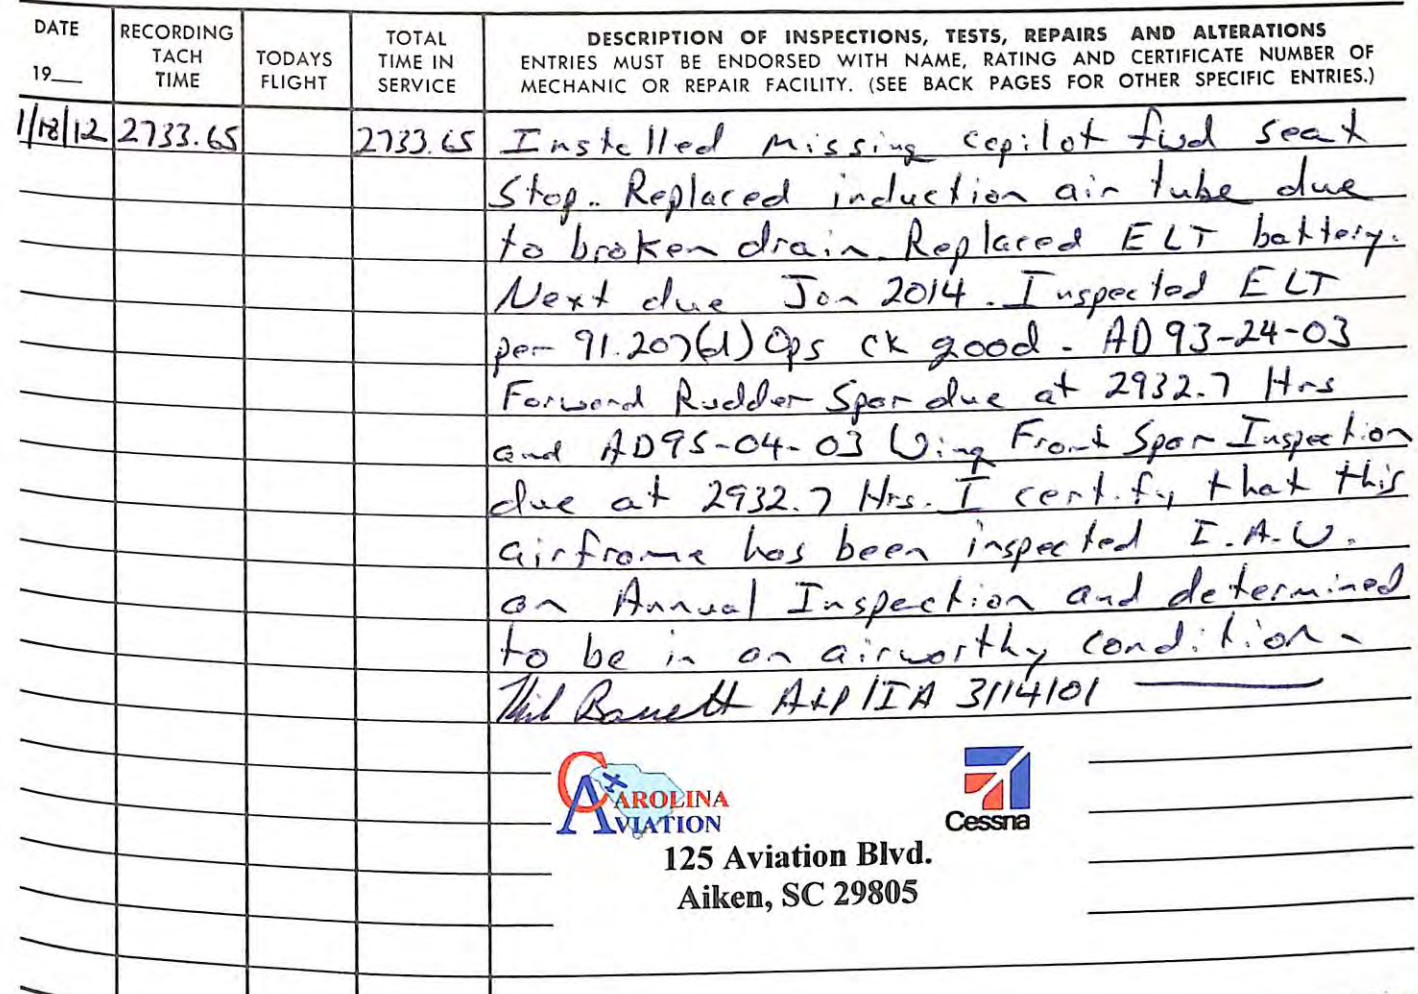 DATE
19__
RECORDING
TACH
TIME
TODAYS
FLIGHT
TOTAL
TIME IN
SERVICE
DESCRIPTION OF INSPECTIONS, TESTS, REPAIRS AND ALTERATIONS
ENTRIES MUST BE ENDORSED WITH NAME, RATING AND CERTIFICATE NUMBER OF
MECHANIC OR REPAIR FACILITY. (SEE BACK PAGES FOR OTHER SPECIFIC ENTRIES.)
1/18/12 2733.65 2733.65 Installed missing copilot fwd seat
Stop.. Replaced induction air tube due
to broken drain. Replaced ELT battery.
Next due Jan 2014. Inspected ELT
per 91.207(d) Ops ck good - AD 93-24-03
Forward Rudder Spar due at 2932.7 Hrs
and AD95-04-03 Wing Front Spar Inspection
due at 2932.7 Hrs. I certify that this
airframe has been inspected I.A.W.
an Annual Inspection and determined
to be in an airworthy condition -
A&P/IA 3114101
CAROLINA
AVIATION
Cessna
125 Aviation Blvd.
Aiken, SC 29805